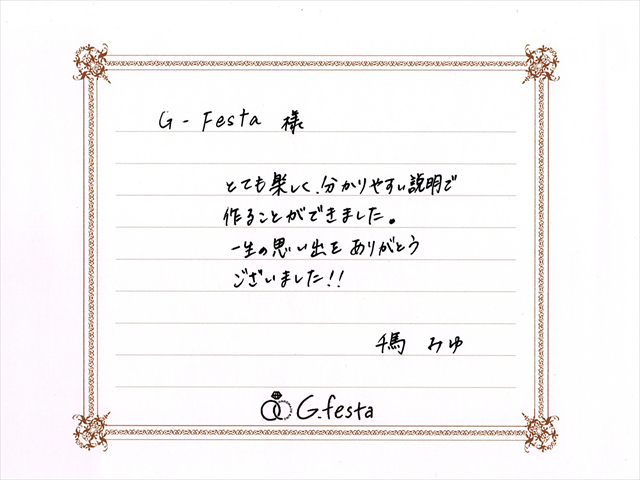 G - Festa 様
とても楽しく、分かりやすい説明で
作ることができました。
一生の思い出をありがとう
ございました!!
千馬 みゆ
G.festa